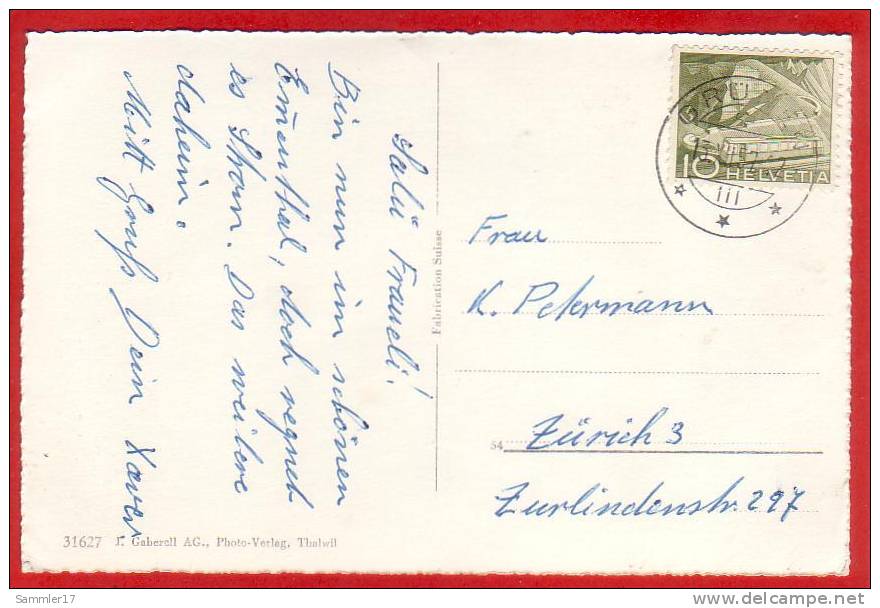 Salü Fraueli!
Bin nun im schönen
Emmenthal, doch regnet
es Strom. Das weitere
daheim.
Mitt Gruß Dein Xaver
Fabrication Suisse
10 HELVETIA
GRÜ
III
Frau
K. Petermann
54
Zürich 3
Zurlindenstr. 297
31627 J. Gaberell AG., Photo-Verlag, Thalwil
Sammler17
delcampe.net